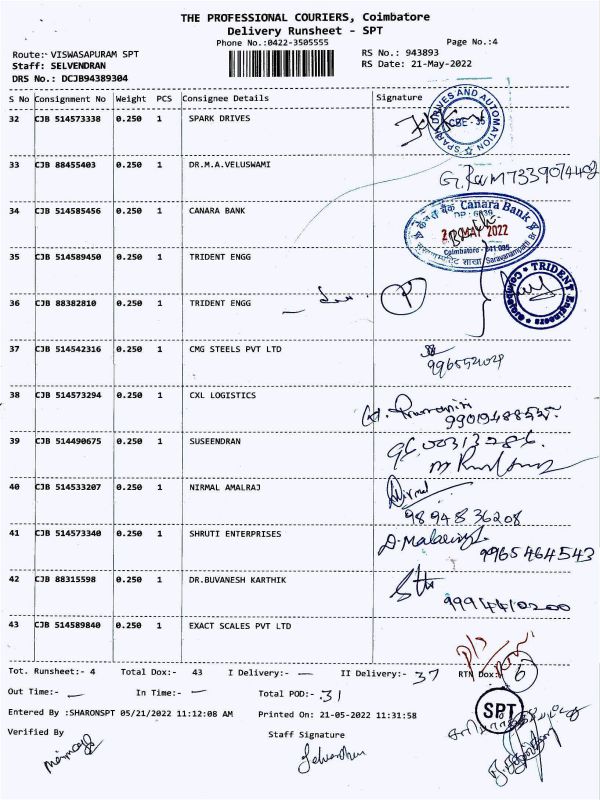 THE PROFESSIONAL COURIERS, Coimbatore
Delivery Runsheet - SPT
Phone No.:0422-3505555 Page No.:4
Route:- VISWASAPURAM SPT RS No.: 943893
Staff: SELVENDRAN RS Date: 21-May-2022
DRS No.: DCJB94389304
S No Consignment No Weight PCS Consignee Details Signature
32 CJB 514573338 0.250 1 SPARK DRIVES
SPARK DRIVES AND AUTOMATION
CBE - 35
33 CJB 88455403 0.250 1 DR.M.A.VELUSWAMI
34 CJB 514585456 0.250 1 CANARA BANK
केनरा बैंक Canara Bank
MAY 2022
Coimbatore - 641 035
शाखा Saravanampatti Br
35 CJB 514589450 0.250 1 TRIDENT ENGG
TRIDENT Engineers
Coimbatore
36 CJB 88382810 0.250 1 TRIDENT ENGG
37 CJB 514542316 0.250 1 CMG STEELS PVT LTD
38 CJB 514573294 0.250 1 CXL LOGISTICS
39 CJB 514490675 0.250 1 SUSEENDRAN
40 CJB 514533207 0.250 1 NIRMAL AMALRAJ
Nirmal
9894836208
41 CJB 514573340 0.250 1 SHRUTI ENTERPRISES
9965464543
42 CJB 88315598 0.250 1 DR.BUVANESH KARTHIK
9994410200
43 CJB 514589840 0.250 1 EXACT SCALES PVT LTD
Tot. Runsheet:- 4 Total Dox:- 43 I Delivery:- — II Delivery:- 37 RTN Dox: 6
Out Time:- — In Time:- — Total POD:- 31
SPT
Entered By :SHARONSPT 05/21/2022 11:12:08 AM Printed On: 21-05-2022 11:31:58
Verified By Staff Signature